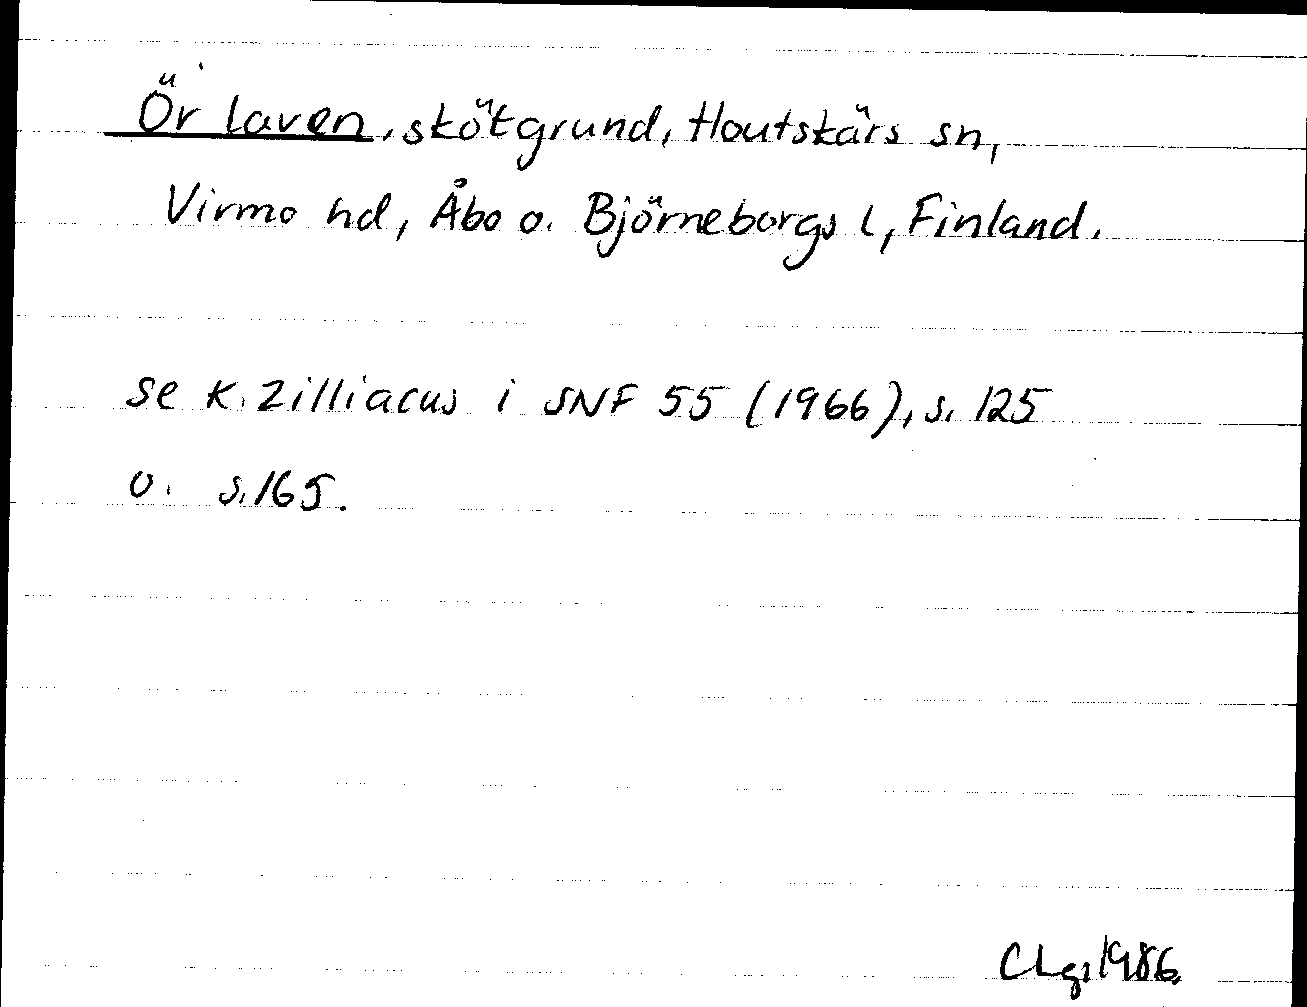 Ör laven, skötgrund, Houtskärs sn,
Virmo hd, Åbo o. Björneborgs l, Finland.
se K. Zilliacus i SNF 55 (1966), s. 125
o. s. 165.
CLg, 1986.